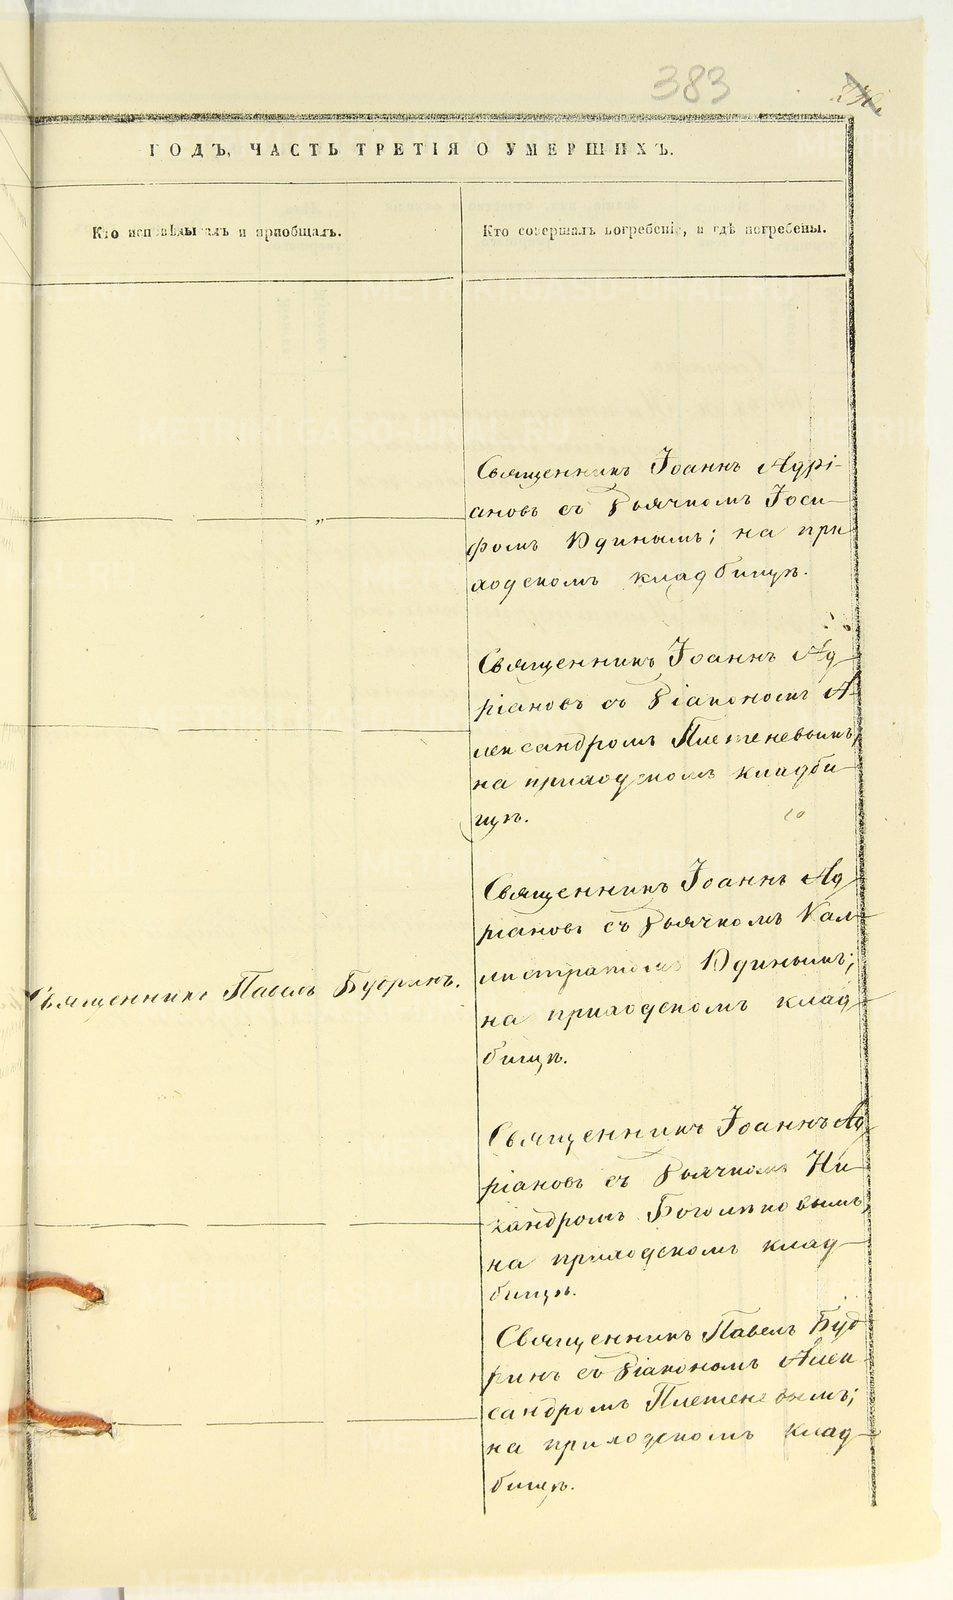 383
ГОДЪ, ЧАСТЬ ТРЕТІЯ О УМЕРШИХЪ.
Кто исповѣдывалъ и пріобщалъ.
Кто совершалъ погребеніе, и гдѣ погребены.
Священникъ Іоаннъ Адрі-
ановъ съ Дьячкомъ Іоси-
фомъ Юдинымъ; на при
ходскомъ кладбищѣ.
Священникъ Іоаннъ Ад
ріановъ съ Діакономъ А-
лександромъ Плетеневымъ,
на приходскомъ кладби
щѣ.
Священникъ Павелъ Будринъ.
Священникъ Іоаннъ Ад
ріановъ съ Дьячкомъ Кал-
листратомъ Юдинымъ;
на приходскомъ клад
бищѣ.
Священникъ Іоаннъ Ад
ріановъ съ Дьячкомъ Ни-
кандромъ Боголѣповымъ,
на приходскомъ клад-
бищѣ.
Священникъ Павелъ Буд
ринъ съ Діакономъ Алек-
сандромъ Плетеневымъ;
на приходскомъ клад-
бищѣ.
METRIKI.GASO-URAL.RU